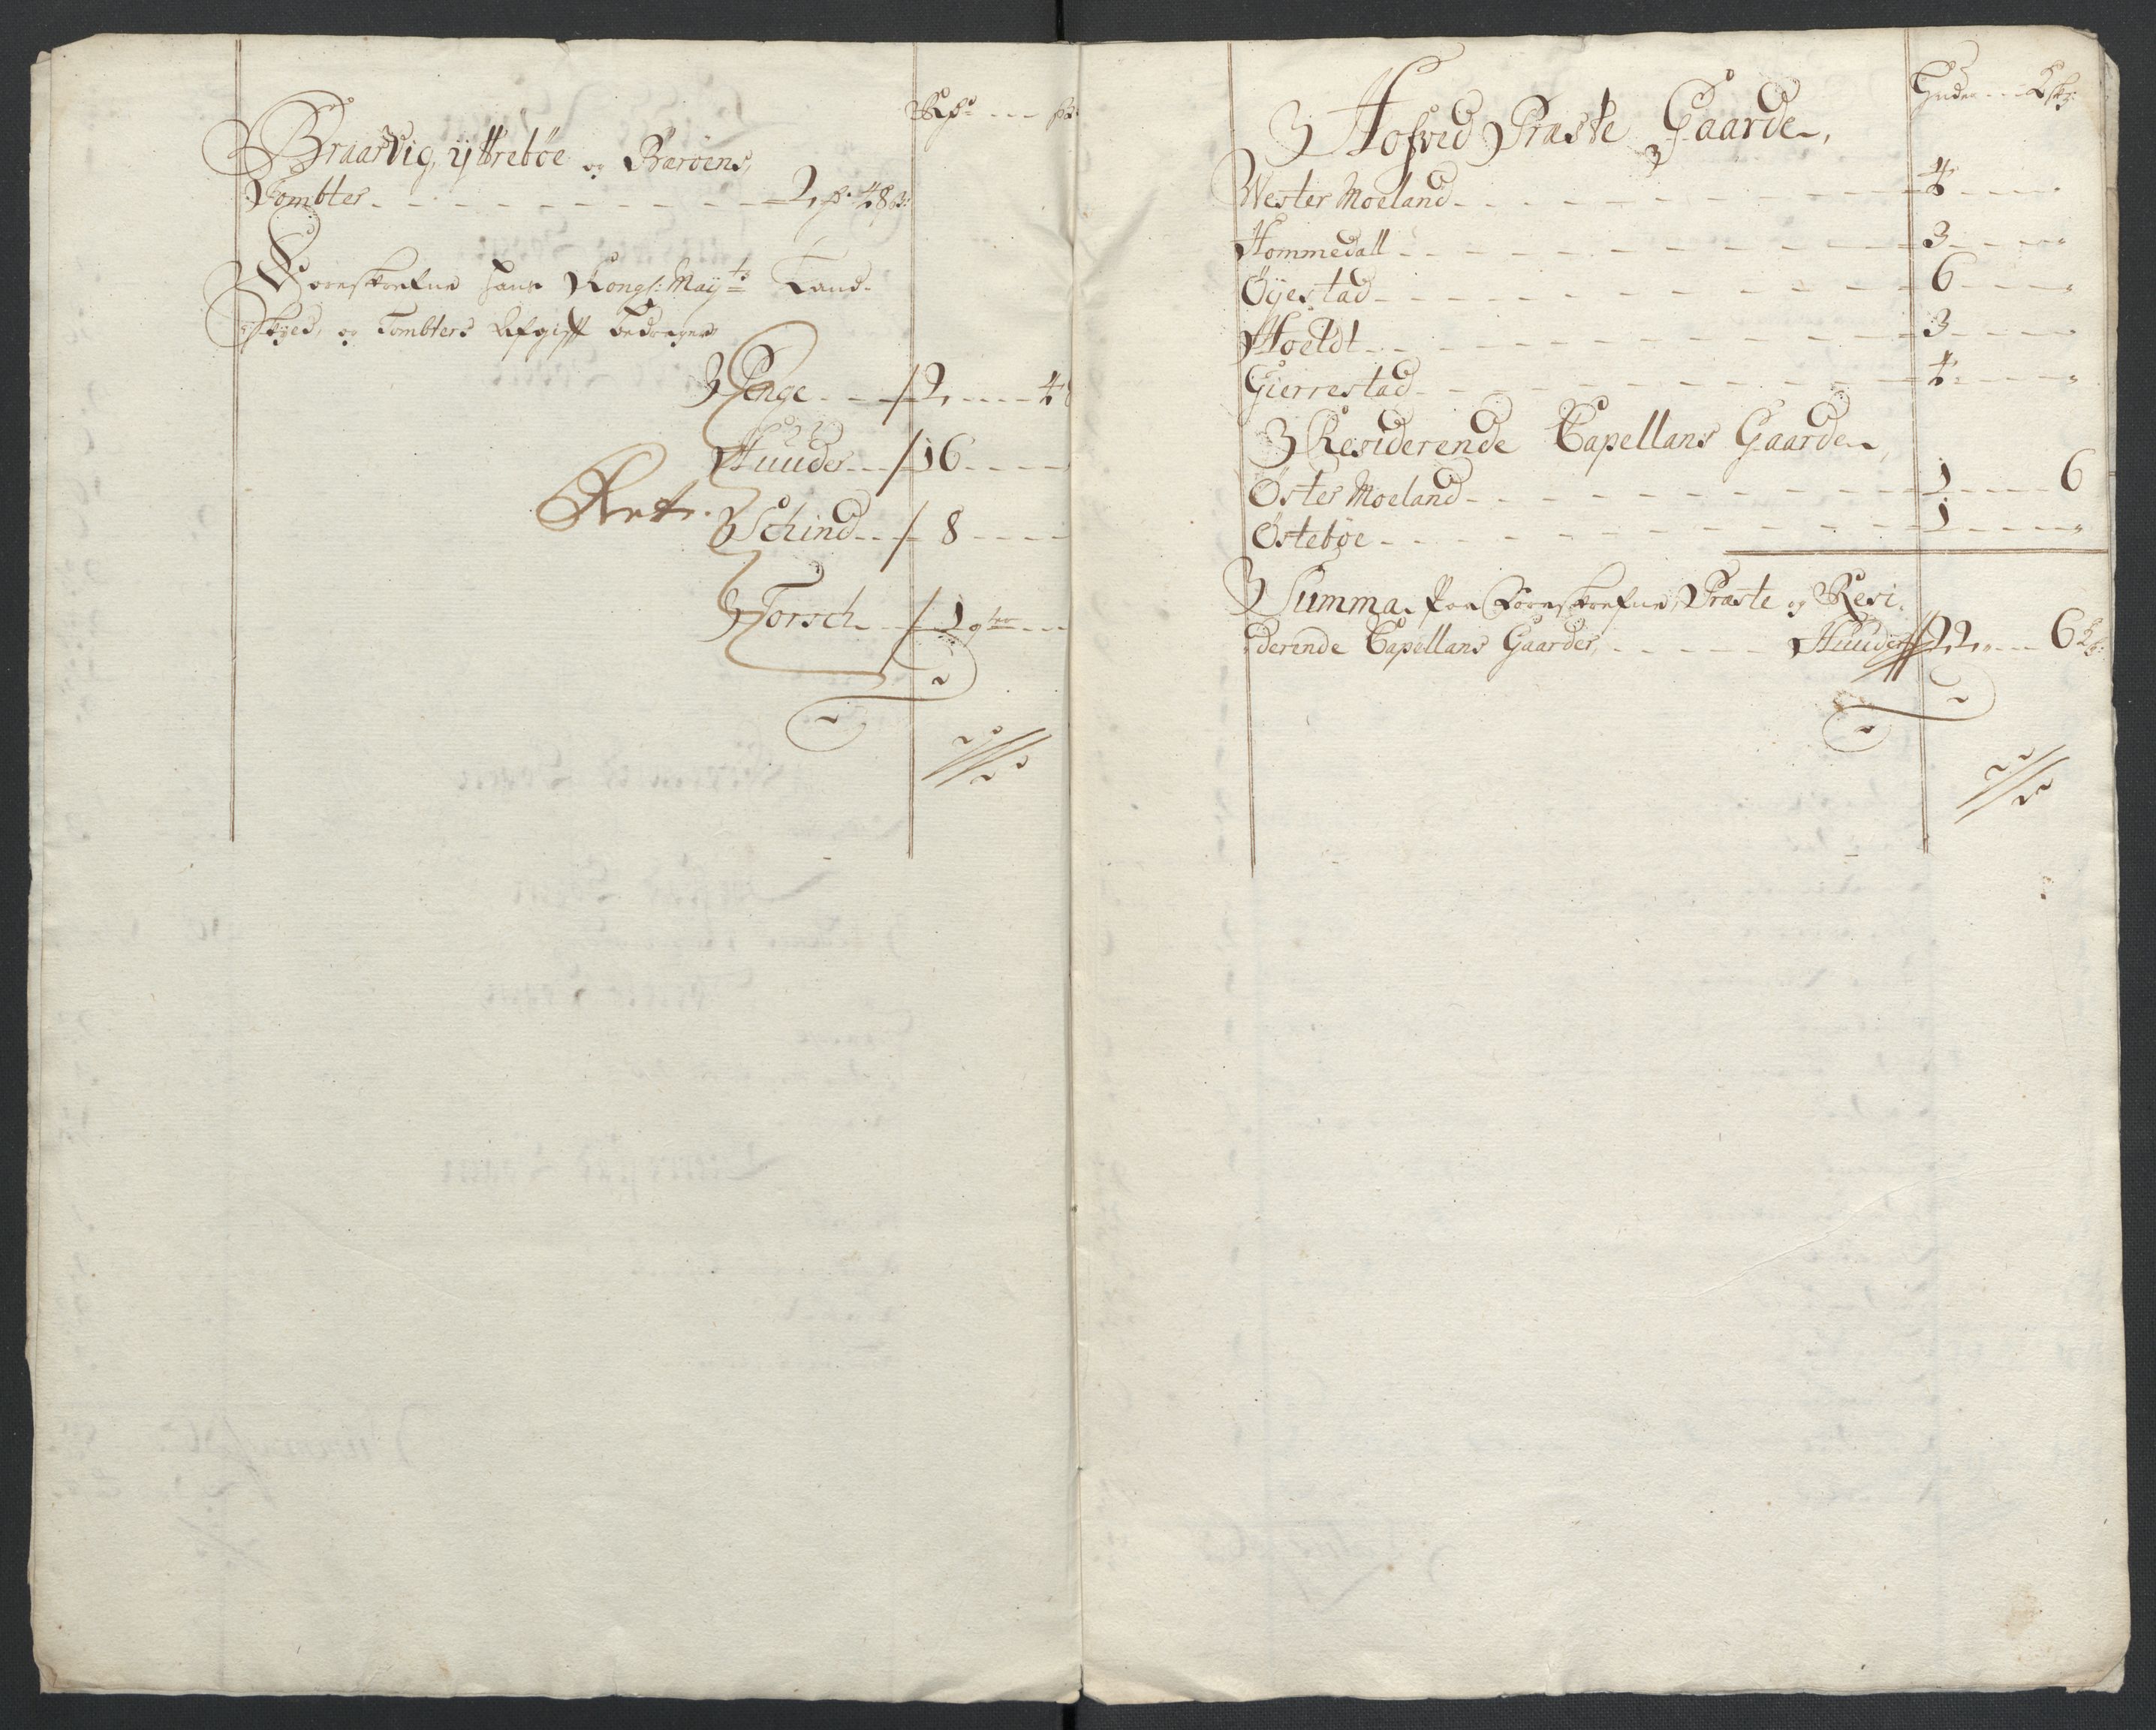 Rd - - - ß
Braarvig, ÿttrebøe og Barøens,
Tombter - - - - - - - - - - 2 48 ß
Foreskrefne hans Kongl: May:ts Land-
skyld, og Tombters Afgifft bedrager
Penge - - - 2 - - - - 4
Huuder - - - 16 - - - -
Ret.
Schind - - - 8 - - - -
Torsch - - - 1 qter - - -
Huder - - - Ksk:
Hofved Præste Gaarde,
Wester Moeland - - - - - - - - 4 - - - - "
Hommedall - - - - - - - - 3 - - - - "
Öÿestad - - - - - - - - 6 - - - - "
Hoeldt - - - - - - - - 3 - - - - "
Gierrestad - - - - - - - - 4 - - - - "
Residerende Capellans Gaarde,
Öster Moeland - - - - - - - - 1 - - - - 6
Östebøe - - - - - - - - 1 - - - - "
Summa paa Foreskrefne, Præste og Resi-
derende Capellans Gaarder, - - - - - Huuder 22 - - - 6